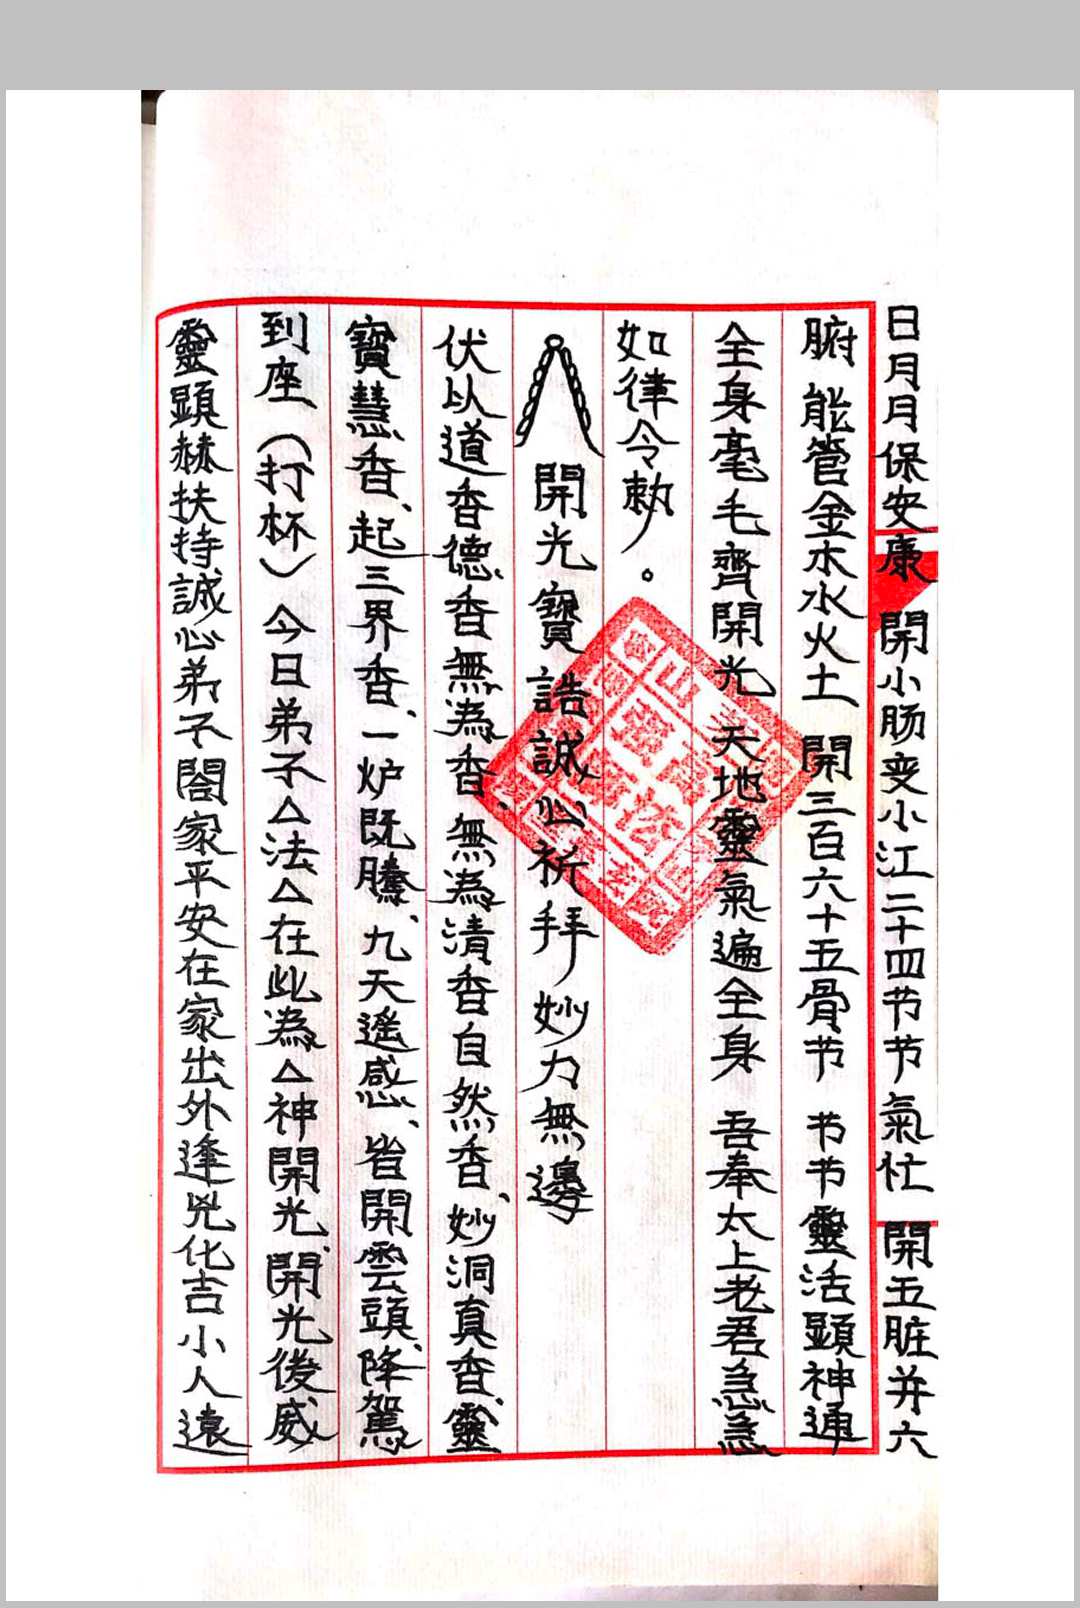 日月月保安康　開小肠变小江二十四节节氣忙　開五脏并六
腑　能管金木水火土　開三百六十五骨节　节节靈活顕神通
全身毫毛齊開光　天地靈氣遍全身　吾奉太上老君急急
如律令勅。
開光寶誥誠心祈拜妙力無邊
伏以道香德香無為香、無為清香自然香、妙洞真香、靈
寶慧香、起三界香、一炉既騰、九天遥感、皆開雲頭、降駕
到座（打杯）今日弟子△法△在此為△神開光、開光後威
靈顕赫扶持誠心弟子閤家平安在家出外逢兇化吉小人遠